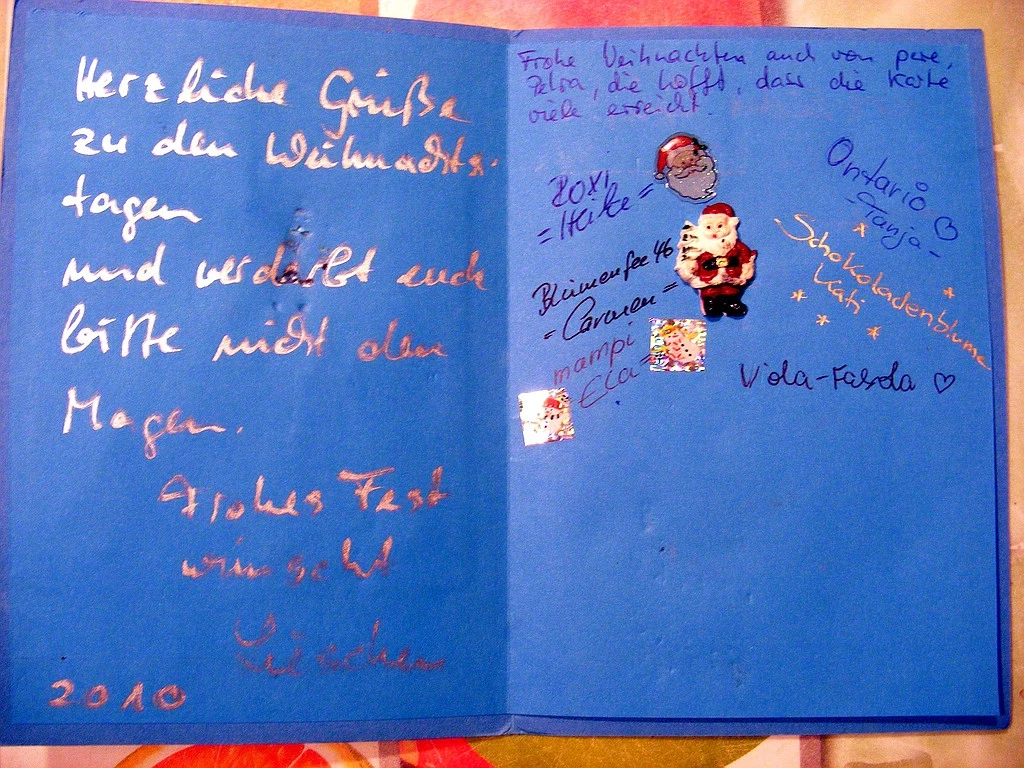 Herzliche Grüße
zu den Weihnachts-
tagen
und verderbt euch
bitte nicht den
Magen.
Frohes Fest
wünscht
2010
Frohe Weihnachten auch von pere,
Petra, die hofft, dass die Karte
viele erreicht.
ROXI
= Heike =
Blumenfee 46
= Carmen =
mampi
Ela =
Ontario
- Tanja -
Schokoladenblume
Kati
Viola-Fasola